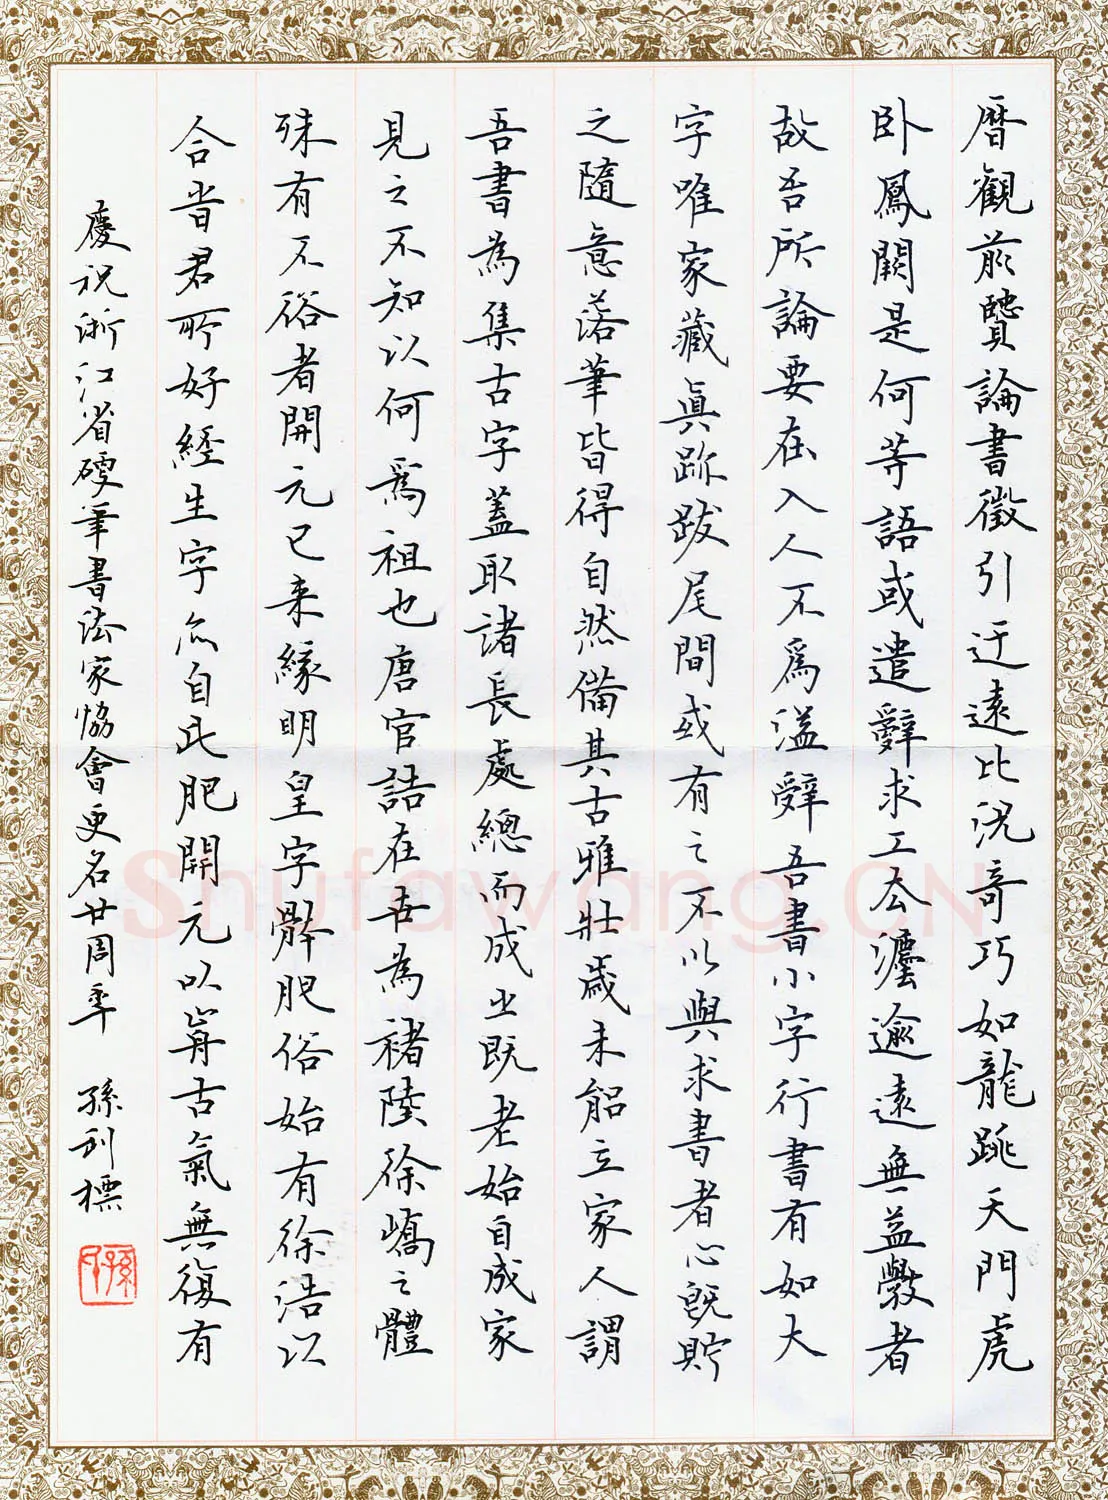 曆觀前賢論書徵引迂遠比況奇巧如龍跳天門虎
卧鳳闕是何等語或遣辭求工去灋逾遠無益學者
故吾所論要在入人不為溢辭吾書小字行書有如大
字唯家藏真跡跋尾間或有之不以與求書者心既貯
之隨意落筆皆得自然備其古雅壯歲未能立家人謂
吾書為集古字蓋取諸長處總而成之既老始自成家
見之不知以何為祖也唐官誥在世為褚陸徐嶠之體
殊有不俗者開元已来緣明皇字體肥俗始有徐浩以
合時君所好經生字亦自此肥開元以前古氣無復有
慶祝浙江省硬筆書法家協會更名廿周年 孫利標
孫
Shufawang.CN